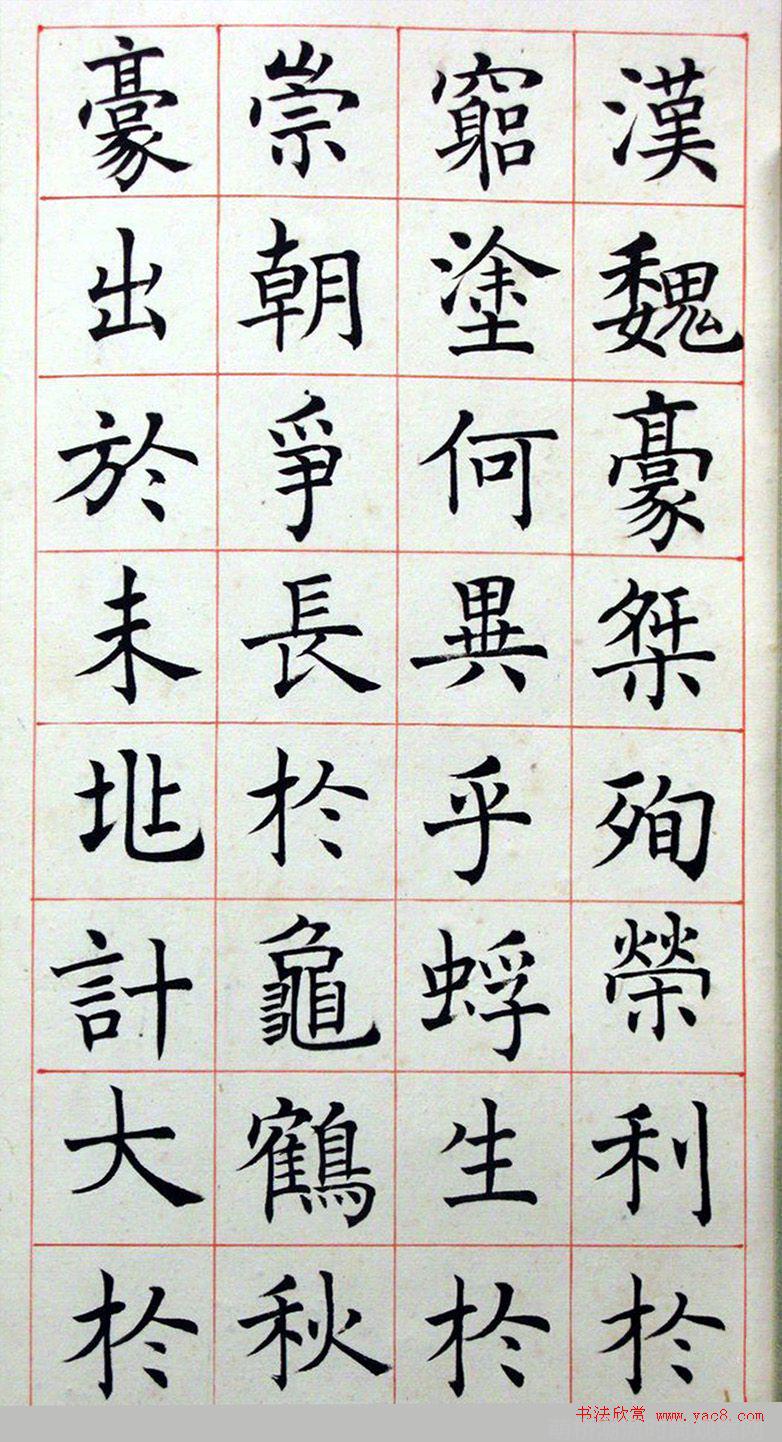 漢魏豪桀殉榮利於
窮塗何異乎蜉生於
崇朝爭長於龜鶴秋
豪出於未兆計大於
书法欣赏 www.yac8.com